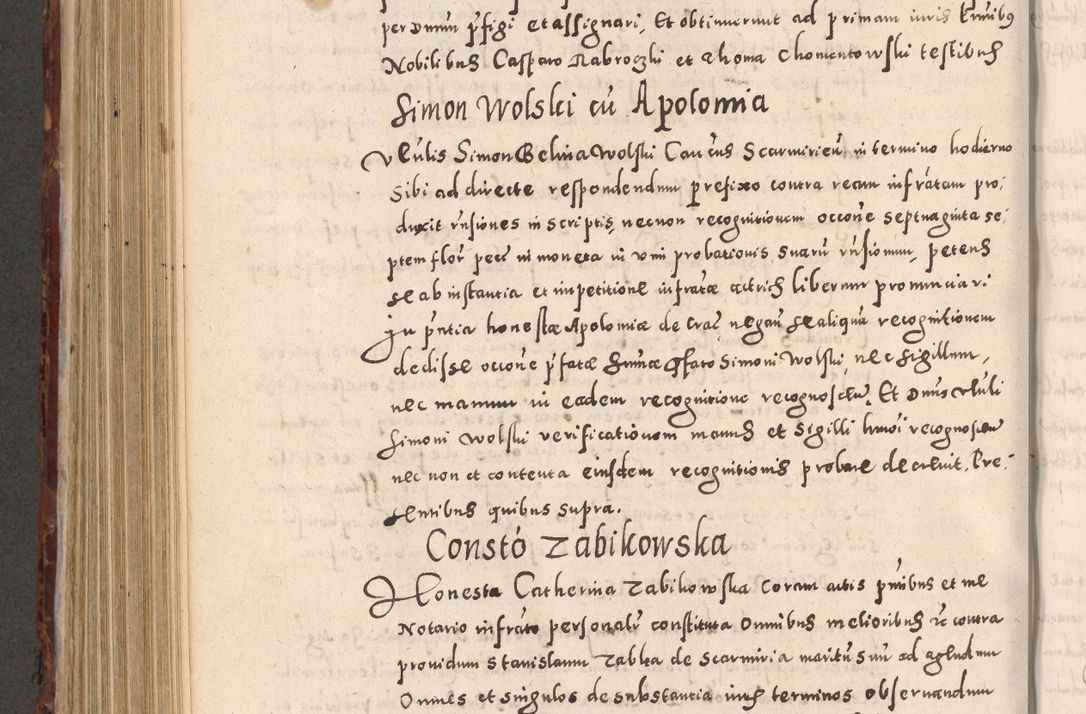 per Dnum p̃figi et assignari, Et obtinuerunt ad primam iuris
Nobilibus Casparo Nabroczki et Thoma Chomentowski testibus
Simon Wolski cũ Apolonia
Simon Belina Wolski in termino hodierno
sibi ad directe respondendum prefixo contra infratam pro-
duxit in scriptis, necnon recognitionem occoñe septuaginta se-
ptem flor̃ pecũ in moneta in vim probationis suarũ petens
se ab instantia et impetitione infratæ actricis liberum pronunciari
In p̃ntia honestæ Apoloniæ de negañ se aliquã recognitionem
dedisse occoñe p̃fatæ summæ Simoni Wolski, nec sigillum,
nec manum in eadem recognitione Et Dnus
Simoni Wolski verificationem manus et sigilli
nec non et contenta eiusdem recognitionis probare decrevit. Pre-
sentibus quibus supra.
Constõ Zabikowska
Honesta Catherina Zabikowska coram actis p̃ntibus et me
Notario infrato personalr̃ constituta omnibus melioribus contra
providum Stanislaum Zabka de Scarmiria maritũ suũ ad agendum
omnes et singulos de substantia iuris terminos observandum